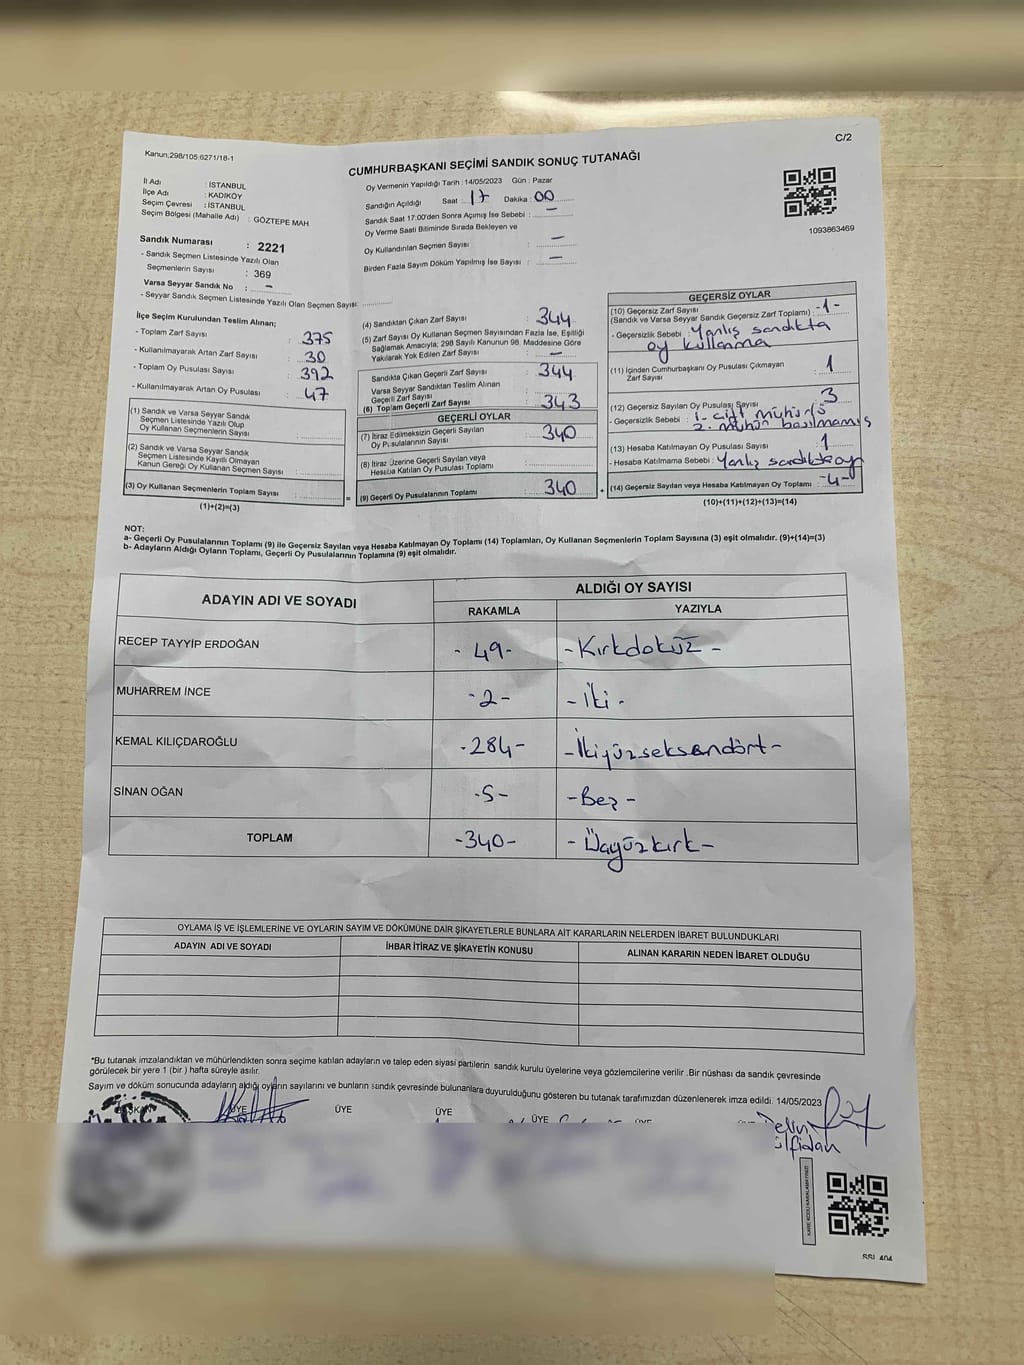 C/2
Kanun:298/105,6271/18-1
CUMHURBAŞKANI SEÇİMİ SANDIK SONUÇ TUTANAĞI
İl Adı : İSTANBUL
İlçe Adı : KADIKÖY
Seçim Çevresi : İSTANBUL
Seçim Bölgesi (Mahalle Adı) : GÖZTEPE MAH.
Sandık Numarası : 2221
- Sandık Seçmen Listesinde Yazılı Olan
Seçmenlerin Sayısı : 369
Varsa Seyyar Sandık No : -
- Seyyar Sandık Seçmen Listesinde Yazılı Olan Seçmen Sayısı:
Oy Vermenin Yapıldığı Tarih : 14/05/2023 Gün : Pazar
Sandığın Açıldığı Saat : 17 Dakika : 00
Sandık Saat 17:00'den Sonra Açımış İse Sebebi : -
Oy Verme Saati Bitiminde Sırada Bekleyen ve
Oy Kullandırılan Seçmen Sayısı : -
Birden Fazla Sayım Döküm Yapılmış İse Sayısı : -
1093863469
İlçe Seçim Kurulundan Teslim Alınan;
- Toplam Zarf Sayısı : 375
- Kullanılmayarak Artan Zarf Sayısı : 30
- Toplam Oy Pusulası Sayısı : 392
- Kullanılmayarak Artan Oy Pusulası : 47
(1) Sandık ve Varsa Seyyar Sandık
Seçmen Listesinde Yazılı Olup
Oy Kullanan Seçmenlerin Sayısı :
(2) Sandık ve Varsa Seyyar Sandık
Seçmen Listesinde Kayıtlı Olmayan
Kanun Gereği Oy Kullanan Seçmen Sayısı :
(3) Oy Kullanan Seçmenlerin Toplam Sayısı :
(1)+(2)=(3)
(4) Sandıktan Çıkan Zarf Sayısı : 344
(5) Zarf Sayısı Oy Kullanan Seçmen Sayısından Fazla İse, Eşitliği
Sağlamak Amacıyla; 298 Sayılı Kanunun 98. Maddesine Göre
Yakılarak Yok Edilen Zarf Sayısı : -
Sandıkta Çıkan Geçerli Zarf Sayısı : 344
Varsa Seyyar Sandıktan Teslim Alınan
Geçerli Zarf Sayısı :
(6) Toplam Geçerli Zarf Sayısı : 343
GEÇERLİ OYLAR
(7) İtiraz Edilmeksizin Geçerli Sayılan
Oy Pusulalarının Sayısı : 340
(8) İtiraz Üzerine Geçerli Sayılan veya
Hesaba Katılan Oy Pusulası Toplamı :
= (9) Geçerli Oy Pusulalarının Toplamı : 340 +
GEÇERSİZ OYLAR
(10) Geçersiz Zarf Sayısı
(Sandık ve Varsa Seyyar Sandık Geçersiz Zarf Toplamı) : -1-
- Geçersizlik Sebebi : Yanlış sandıkta
oy kullanma
(11) İçinden Cumhurbaşkanı Oy Pusulası Çıkmayan
Zarf Sayısı : 1
(12) Geçersiz Sayılan Oy Pusulası Sayısı : 3
- Geçersizlik Sebebi : 1- çift mühürlü
2. mühür basılmamış
(13) Hesaba Katılmayan Oy Pusulası Sayısı : 1
- Hesaba Katılmama Sebebi : Yanlış sandıkta oy
(14) Geçersiz Sayılan veya Hesaba Katılmayan Oy Toplamı : -4-
(10)+(11)+(12)+(13)=(14)
NOT:
a- Geçerli Oy Pusulalarının Toplamı (9) ile Geçersiz Sayılan veya Hesaba Katılmayan Oy Toplamı (14) Toplamları, Oy Kullanan Seçmenlerin Toplam Sayısına (3) eşit olmalıdır. (9)+(14)=(3)
b- Adayların Aldığı Oyların Toplamı, Geçerli Oy Pusulalarının Toplamına (9) eşit olmalıdır.
ADAYIN ADI VE SOYADI
ALDIĞI OY SAYISI
RAKAMLA YAZIYLA
RECEP TAYYİP ERDOĞAN - 49 - - Kırkdokuz -
MUHARREM İNCE - 2 - - İki -
KEMAL KILIÇDAROĞLU - 284 - - İkiyüzseksendört -
SİNAN OĞAN - 5 - - Beş -
TOPLAM - 340 - - Üçyüzkırk -
OYLAMA İŞ VE İŞLEMLERİNE VE OYLARIN SAYIM VE DÖKÜMÜNE DAİR ŞİKAYETLERLE BUNLARA AİT KARARLARIN NELERDEN İBARET BULUNDUKLARI
ADAYIN ADI VE SOYADI İHBAR İTİRAZ VE ŞİKAYETİN KONUSU ALINAN KARARIN NEDEN İBARET OLDUĞU
*Bu tutanak imzalandıktan ve mühürlendikten sonra seçime katılan adayların ve talep eden siyasi partilerin sandık kurulu üyelerine veya gözlemcilerine verilir .Bir nüshası da sandık çevresinde
görülecek bir yere 1 (bir ) hafta süreyle asılır.
Sayım ve döküm sonucunda adayların aldığı oyların sayılarını ve bunların sandık çevresinde bulunanlara duyurulduğunu gösteren bu tutanak tarafımızdan düzenlenerek imza edildi. 14/05/2023
BAŞKAN ÜYE ÜYE ÜYE ÜYE ÜYE
Pelin